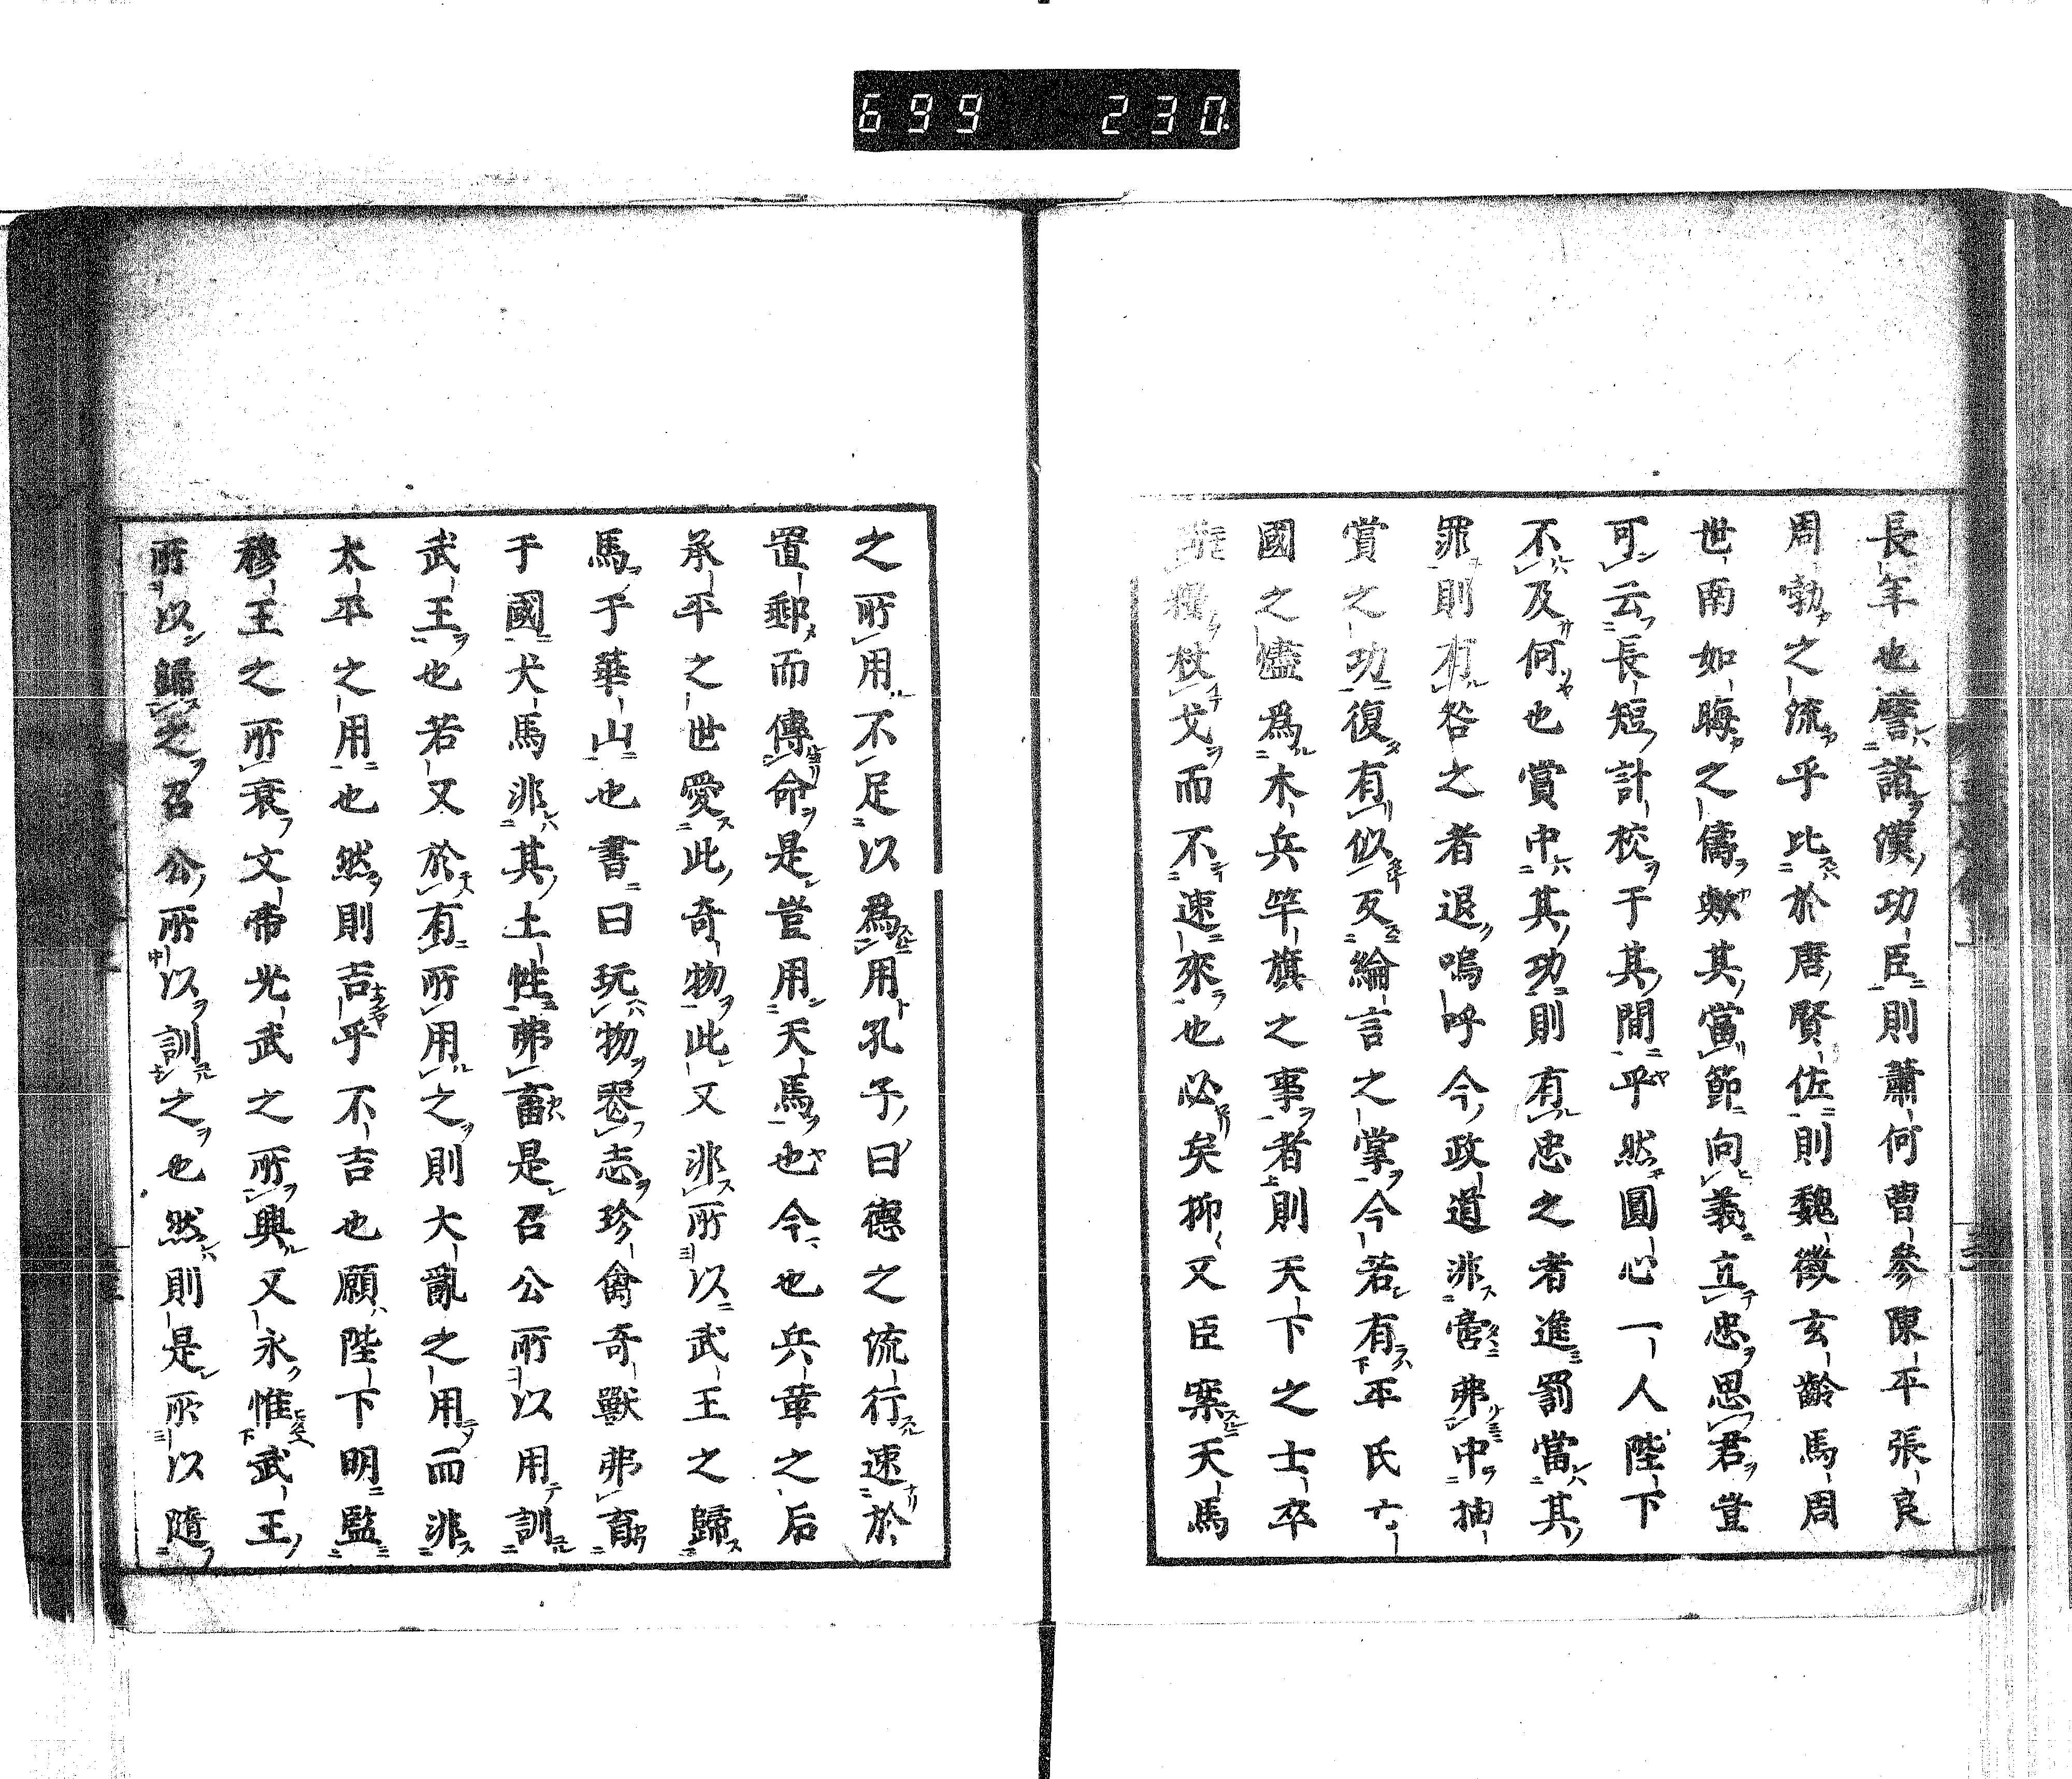 699 230
長年也譬諸漢功臣則蕭何曹參陳平張良
周勃之流乎比於唐賢佐則魏徵玄齡馬周
世南如晦之儔歟其黨節向義立忠思君豈
可云長短計校于其間乎然圓心一人陛下
不及何也賞中其功則有忠之者進罰當其
罪則有咎之者退嗚呼今政道非啻弗中抽
賞之功復有似反綸言之掌今若有平氏亡
國之燼爲木兵竿旗之事者則天下之士卒
杖戈而不速來也必矣抑又臣案天馬
之所用不足以爲用孔子曰德之流行速於
置郵而傳命是豈用天馬也今也兵革之后
承平之世愛此奇物此又非所以武王之歸
馬于華山也書曰玩物喪志珍禽奇獸弗育
于國犬馬非其土性弗畜是召公所以用訓
武王也若又於有所用之則大亂之用而非
太平之用也然則吉乎不吉也願陛下明監
穆王之所衰文帝光武之所興又永惟武王
所以歸之召公所以訓之也然則是所以隨